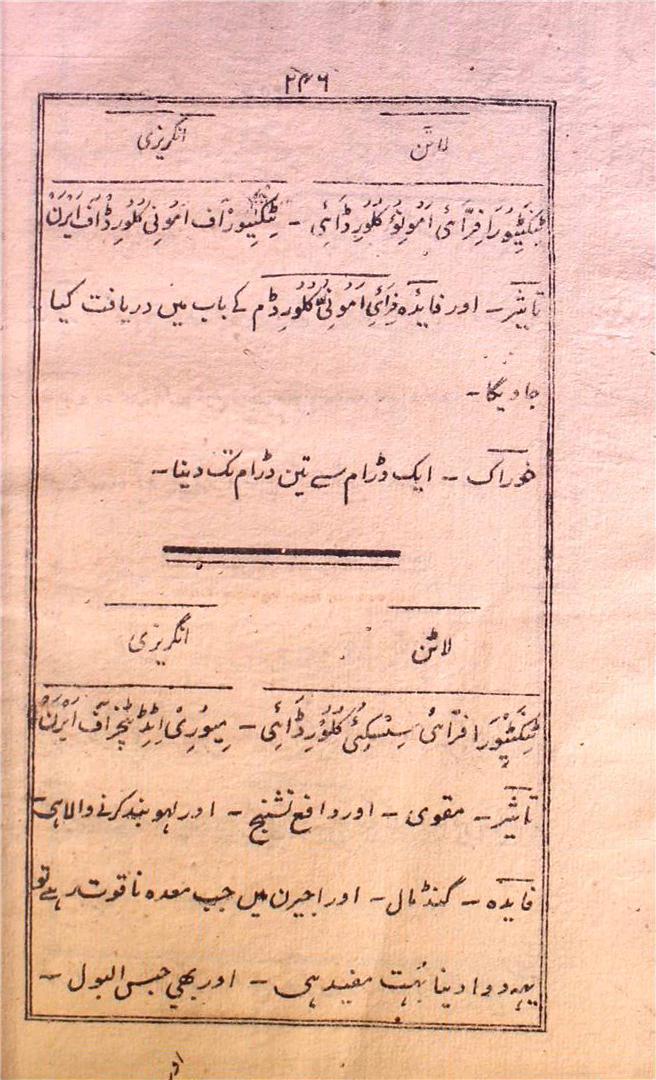 ۲۴۶
لاٹن انگریزی
ٹنکٹیورا فرّائی امونیو کلورڈائی - ٹنکٹیور آف امونی کلورڈ آف ایرن
تاثیر - اور فایدہ فرّائی امونی کلورڈم کے باب میں دریافت کیا
جاویگا -
خوراک - ایک ڈرام سے تین ڈرام تک دینا -
لاٹن انگریزی
ٹنکٹیورا فرّائی سسکئی کلورڈائی - میوری اٹڈ ٹنچر آف ایرن
تاثیر - مقوی - اور دافع تشنج - اور لہو بند کرنے والا ہی -
فایدہ - گنڈمال - اور اجیرن میں جب معدہ ناقوت رہے تو
یہہ دوا دینا بہت مفید ہی - اور بھی حبس البول -
اور